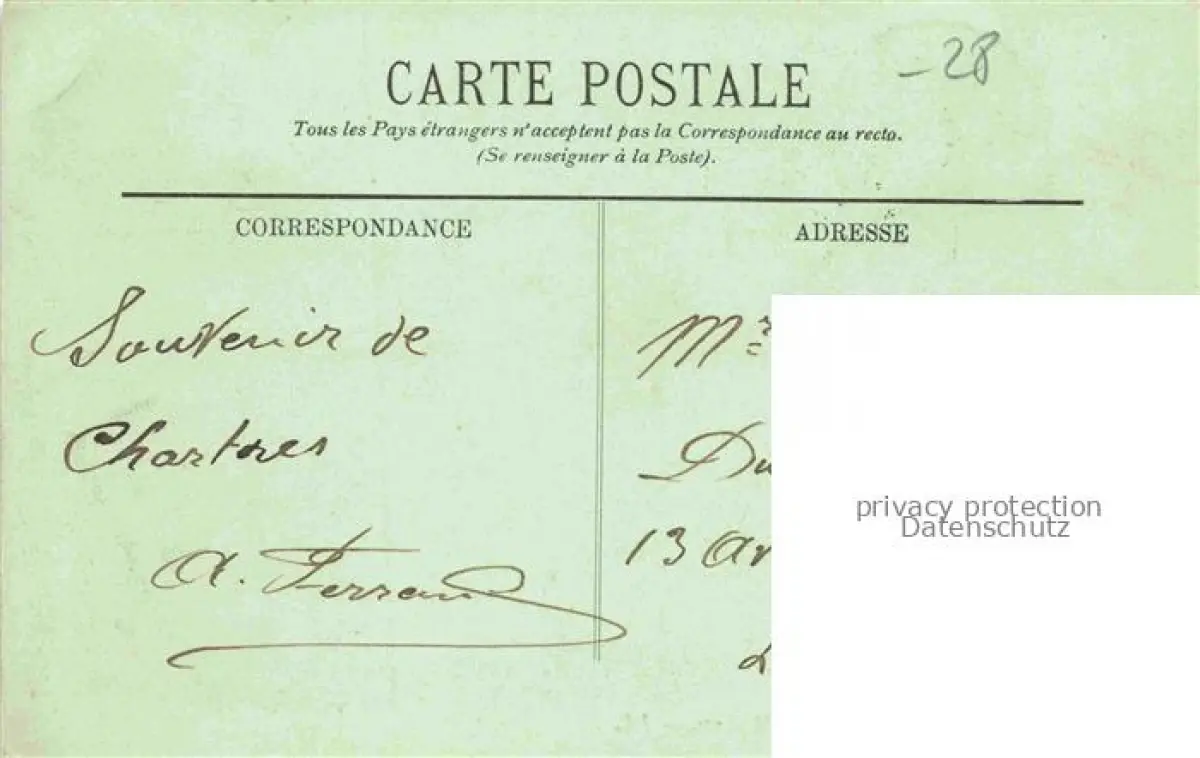 -28
CARTE POSTALE
Tous les Pays étrangers n'acceptent pas la Correspondance au recto.
(Se renseigner à la Poste).
CORRESPONDANCE
ADRESSE
Souvenir de
Chartres
A. Ferrand
Mr
Du
13 Av
privacy protection
Datenschutz